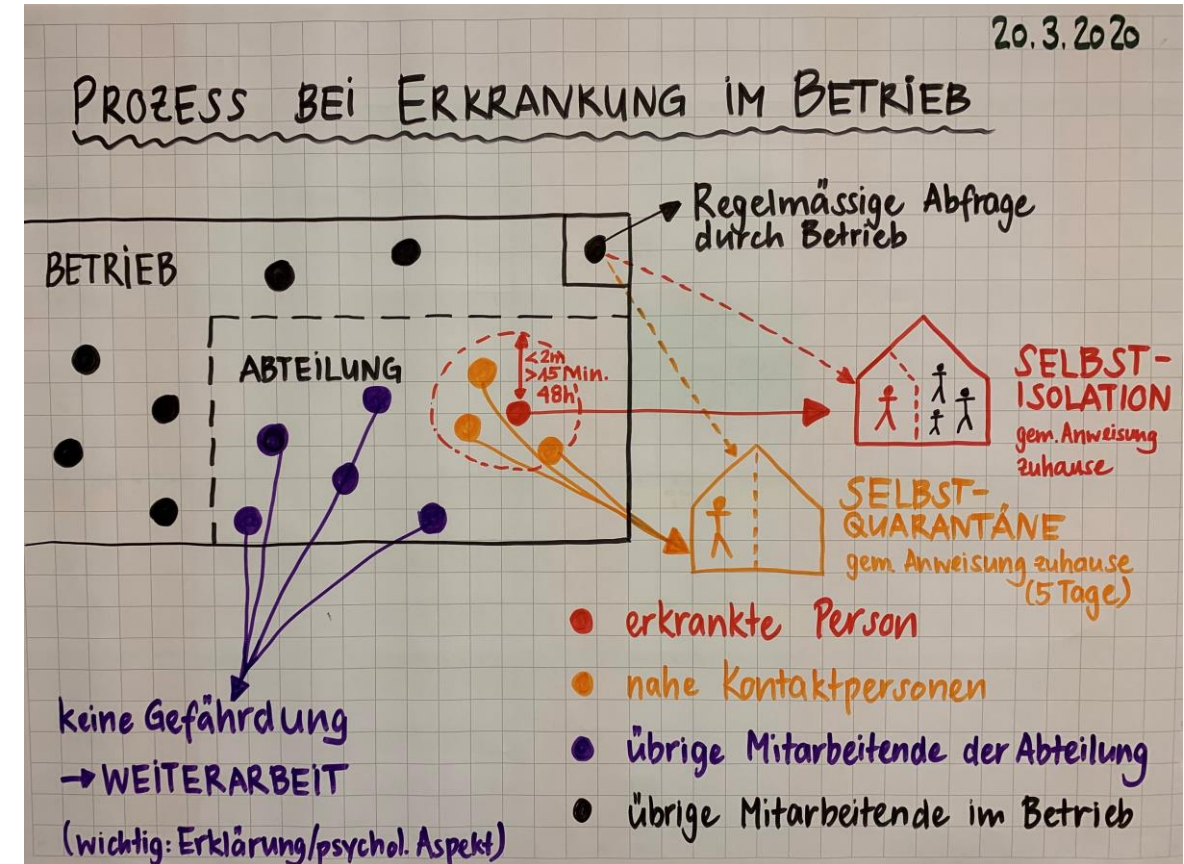 20.3.2020
PROZESS BEI ERKRANKUNG IM BETRIEB
Regelmässige Abfrage
durch Betrieb
BETRIEB
ABTEILUNG
<2m
>15 Min.
48h
SELBST-
ISOLATION
gem. Anweisung
zuhause
SELBST-
QUARANTÄNE
gem. Anweisung zuhause
(5 Tage)
erkrankte Person
nahe Kontaktpersonen
übrige Mitarbeitende der Abteilung
übrige Mitarbeitende im Betrieb
keine Gefährdung
→ WEITERARBEIT
(wichtig: Erklärung/psychol. Aspekt)